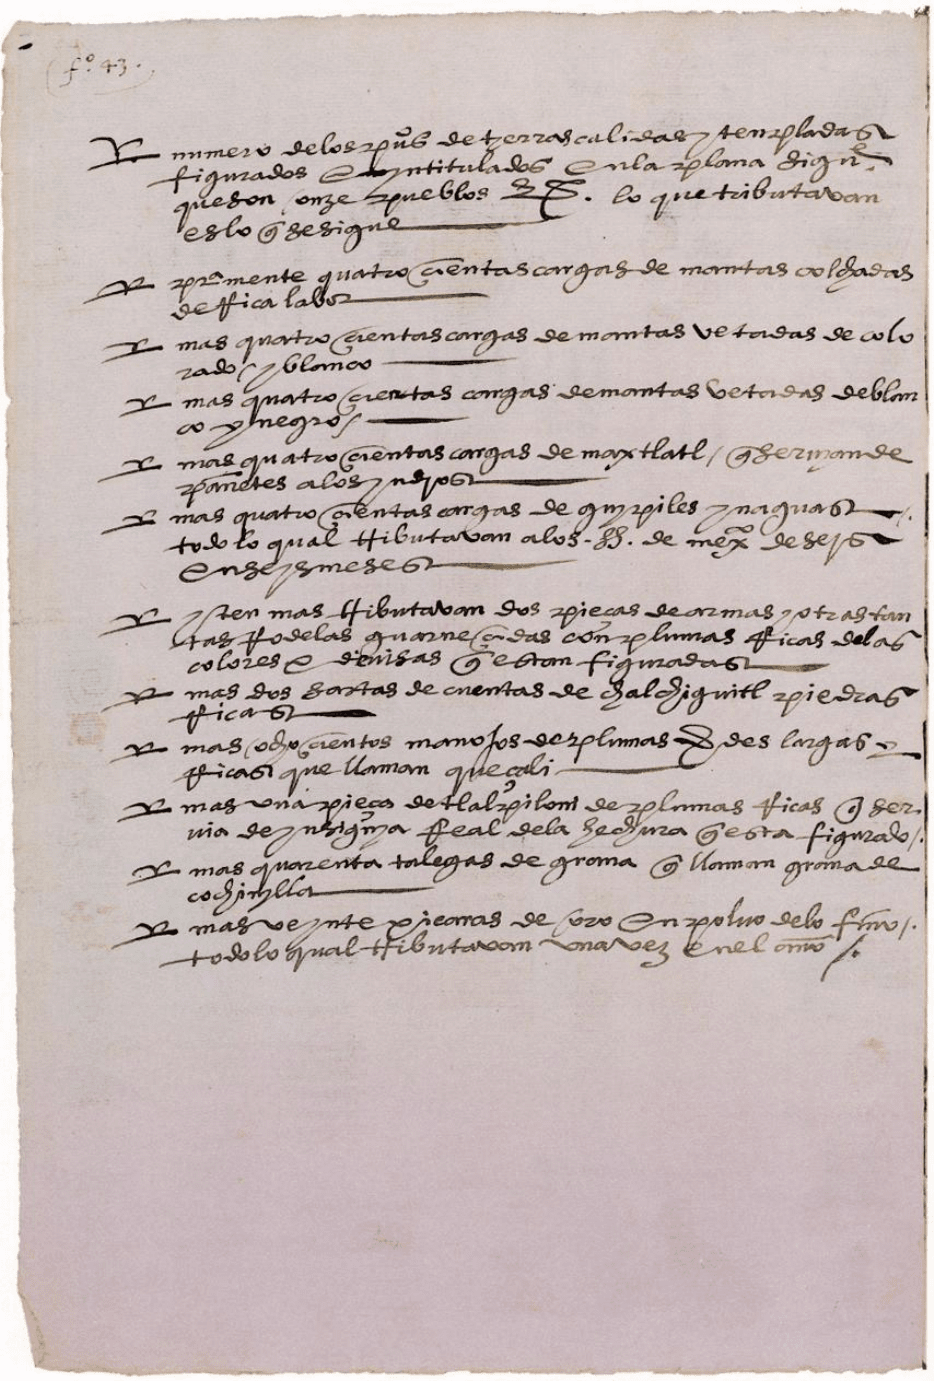 fº. 43.
numero delos puºs de tierras calidas y templadas
figurados E yntitulados En la plana sigue.
que son onze pueblos lo que tributavan
es lo q̄ se sigue
pr̄mente quatro cientas cargas de mantas colchadas
de Rica labor
mas quatro cientas cargas de mantas vetadas de colo
rado / y blanco
mas quatro cientas cargas de mantas vetadas de blan
co y negro /
mas quatro cientas cargas de maxtlatl / q̄ servian de
pañetes a los yndios
mas quatro cientas cargas de guypiles y naguas /.
todo lo qual tributavan a los. SS. de mexco de seys
En seys meses
yten mas tributavan dos pieças de armas y otras tan
tas Rodelas guarneçidas con plumas Ricas de las
colores y devisas q̄ estan figuradas
mas dos sartas de cuentas de chalchiguitl piedras
Ricas
mas ocho cientos manojos de plumas verdes largas
Ricas que llaman queçali
mas una pieça de tlalpiloni de plumas Ricas q̄ ser
via de ynsignya Real de la hechura q̄ esta figurado /.
mas quarenta talegas de grana q̄ llaman grana de
cochinylla
mas veynte xicaras de oro En polvo de lo fino /.
todo lo qual tributavan una vez en el año /.